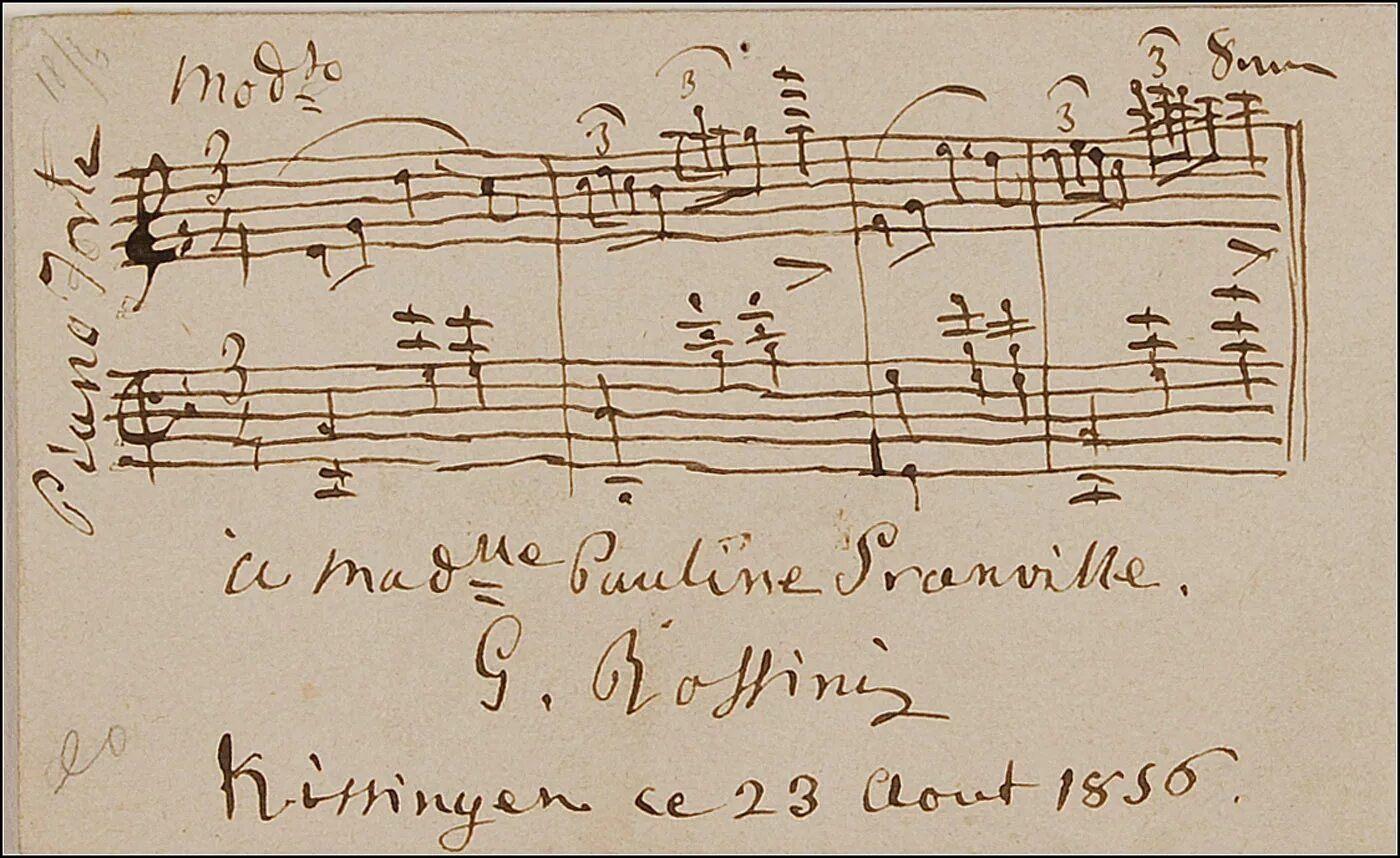 Mod.to
Piano Forte
3 3 3 3
3
4
3
4
à Mad.lle Pauline Granville.
G. Rossini
Kissingen ce 23 Aout 1856.